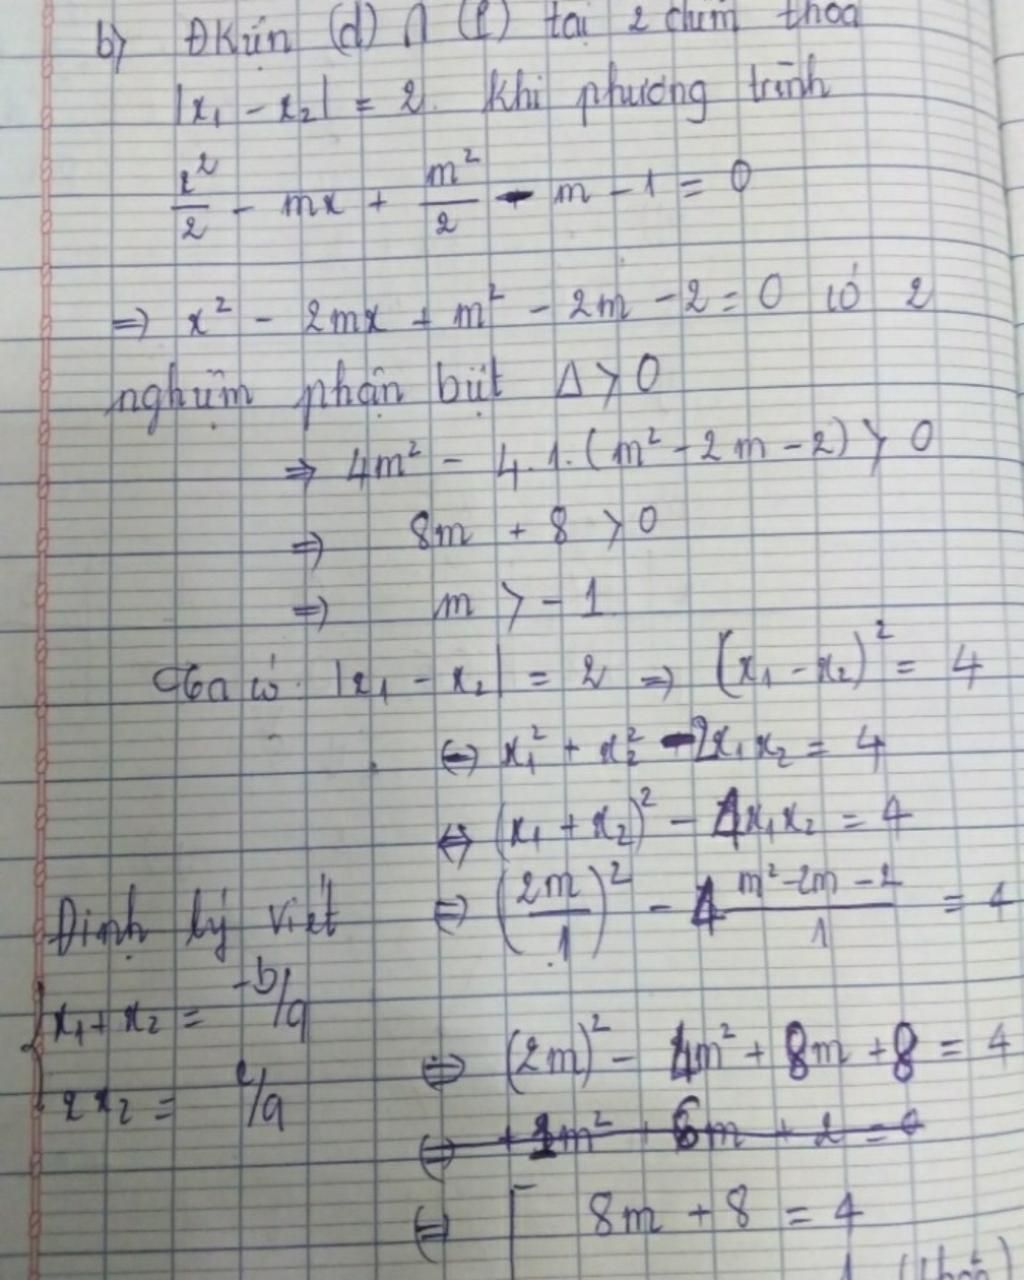 b) ĐKiện (d) ∩ (P) tại 2 điểm thoả
|x₁ - x₂| = 2. Khi phương trình
x²/2 - mx + m²/2 - m - 1 = 0
=> x² - 2mx + m² - 2m - 2 = 0 có 2
nghiệm phận biệt Δ > 0
=> 4m² - 4.1.(m² - 2m - 2) > 0
=> 8m + 8 > 0
=> m > -1
Ta có |x₁ - x₂| = 2 => (x₁ - x₂)² = 4
<=> x₁² + x₂² - 2x₁x₂ = 4
<=> (x₁ + x₂)² - 4x₁x₂ = 4
Định lý Viét
x₁ + x₂ = -b/a
x₂ = c/a
<=> (2m/1)² - 4 m² - 2m - 2/1 = 4
<=> (2m)² - 4m² + 8m + 8 = 4
<=> 8m + 8 = 4